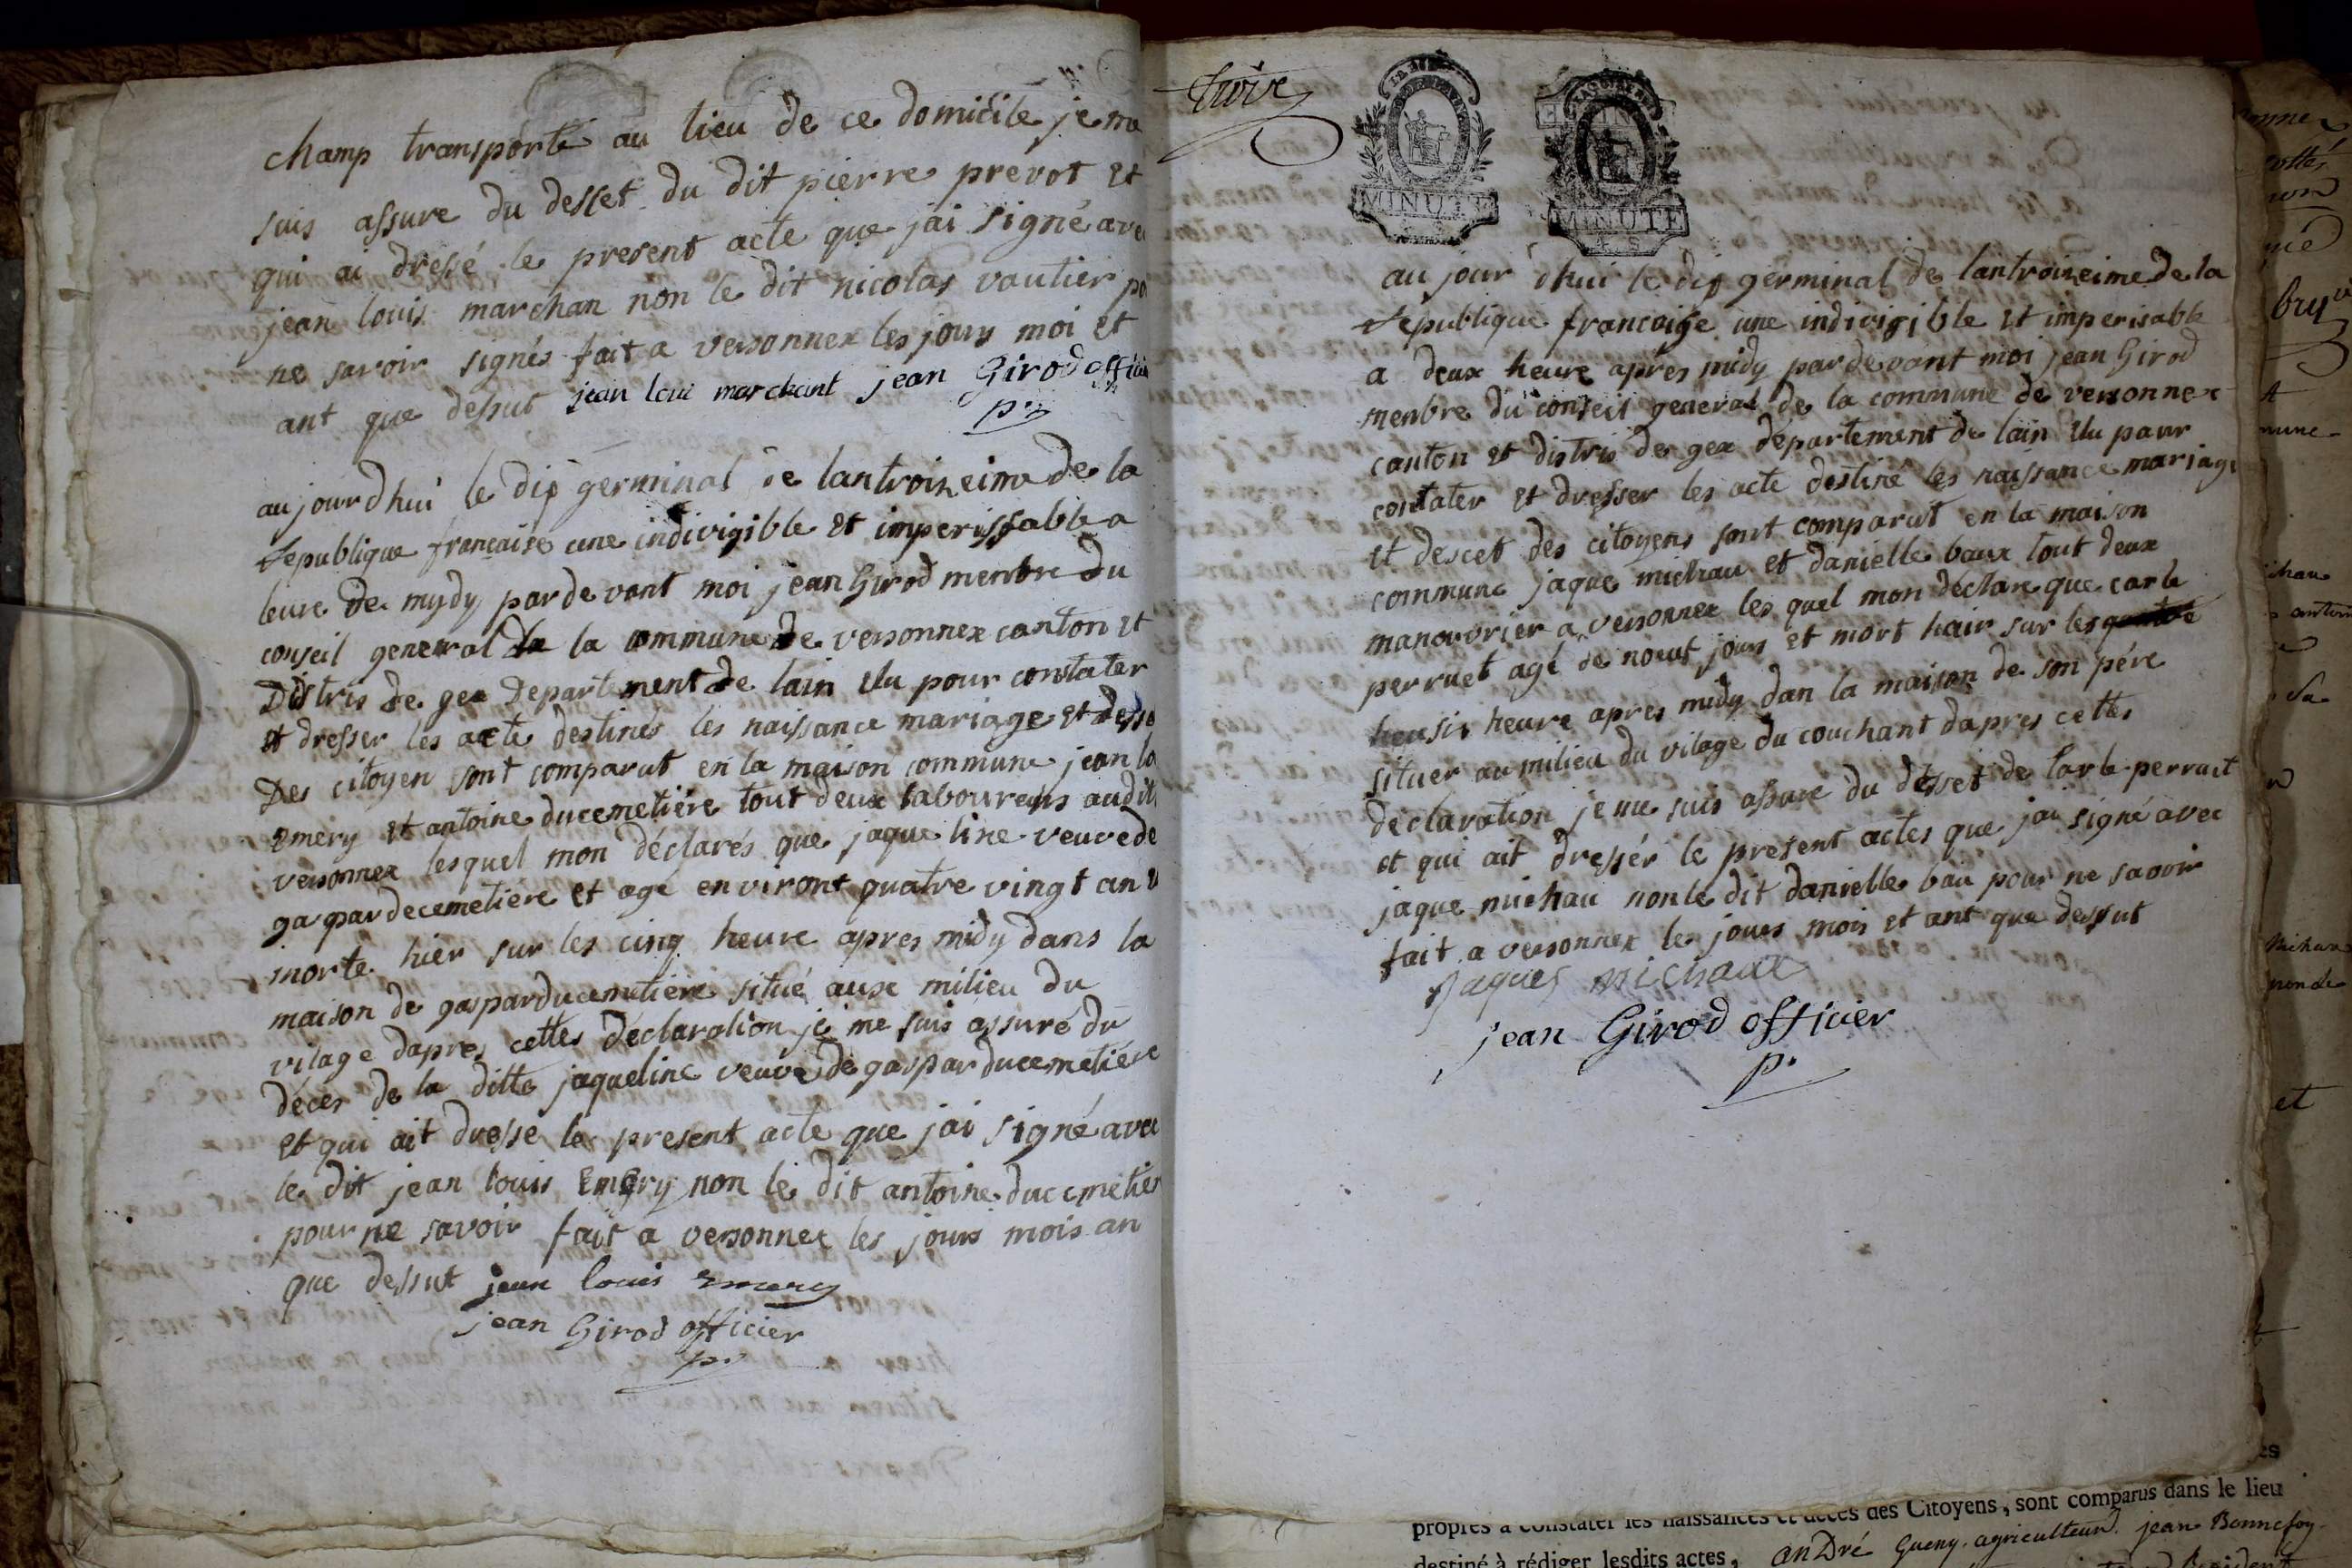 champ transporté au lieu de ce domicile je me
suis assure du desset du dit pierre prevot et
qui ai dressé le present acte que jai signé avec
jean louis marchan non le dit nicolas vautier po
ne savoir signés fait a versonnex les jours moi et
ant que dessut jean loui marchant jean Girod officier
p.
aujourdhui le dix germinal de lantroizeime de la
republique française une indivigible et imperissable a
leure de mydy par devant moi jean Girod menbre du
conseil general de la commune de versonnex canton et
Distris de gex Departement de lain elu pour constater
et dresser les acte destinés les naissance mariage et desse
Des citoyen sont comparut en la maison commune jean lo
Emery et antoine ducemetiére tout deux laboureurs audit
versonnex lesquel mon déclarés que jaqueline veuve de
gaspar decemetiére et agé environt quatre vingt an
morte hier sur les cinq heure apres midy dans la
maison de gasparducemetiére situé aux milieu du
vilage dapres cettes déclaration je me suis assuré du
déces de la ditte jaqueline veuve de gaspar ducemetiére
et qui ait dresse le present acte que jai signé avec
le dit jean louis Emery non le dit antoine ducemetier
pour ne savoir fait a versonnex les jours mois an
que dessut jean louis emery
jean Girod officier
p.
MINUTE
MINUTE
au jour dhui le dix germinal de lantroizeime de la
republique francaise une indivigible et imperisable
a deux heure apres midy par devant moi jean Girod
menbre du conseil general de la commune de versonnex
canton et distris de gex département de lain elu pour
contater et dresser les acte destiné les naissance mariage
et descet des citoyens sont comparut en la maison
commune jaque michau et danielle baux tout deux
manouvrier a versonnex les quel mon déclare que carle
perruet agé de noeut jours et mort hair sur les
sir heure apres midy dan la maison de son pére
situer au milieu du vilage du couchant dapres cettes
déclaration je me suis assure du desset de Carle perruet
et qui ait dressér le present actes que jai signé avec
jaque michau non le dit danielle bau pour ne savoir
fait a versonnex les jours mois et ant que dessut
Jaques michaux
jean Girod officier
p.
propres à constater les naissances et décès des Citoyens, sont comparus dans le lieu
destiné à rédiger lesdits actes, anDré Gueny agriculteur jean Bonnefoy